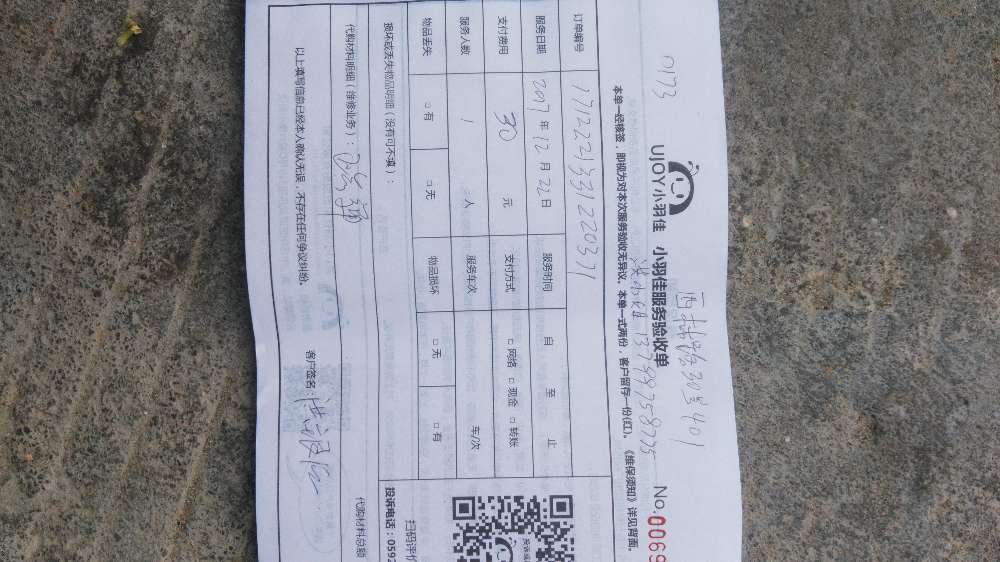 0173
UJOY小羽佳 小羽佳服务验收单 No.0069
13799758775
本单一经核签，即视为对本次服务验收无异议。本单一式两份，客户留存一份(红)。《维保须知》详见背面。
订单编号 1712221331220371
服务日期 2017年12月22日 服务时间 自 至 止
支付费用 30 元 支付方式 □网络 □现金 □转账
服务人数 1 人 服务车次 车/次
物品丢失 □有 □无 物品损坏 □无 □有
损坏或丢失物品明细（没有可不填）：
代购材料明细（维修业务）： 代购材料总额
以上填写信息已经本人确认无误，不存在任何争议纠纷。 客户签名：
扫码评价
投诉电话：0592